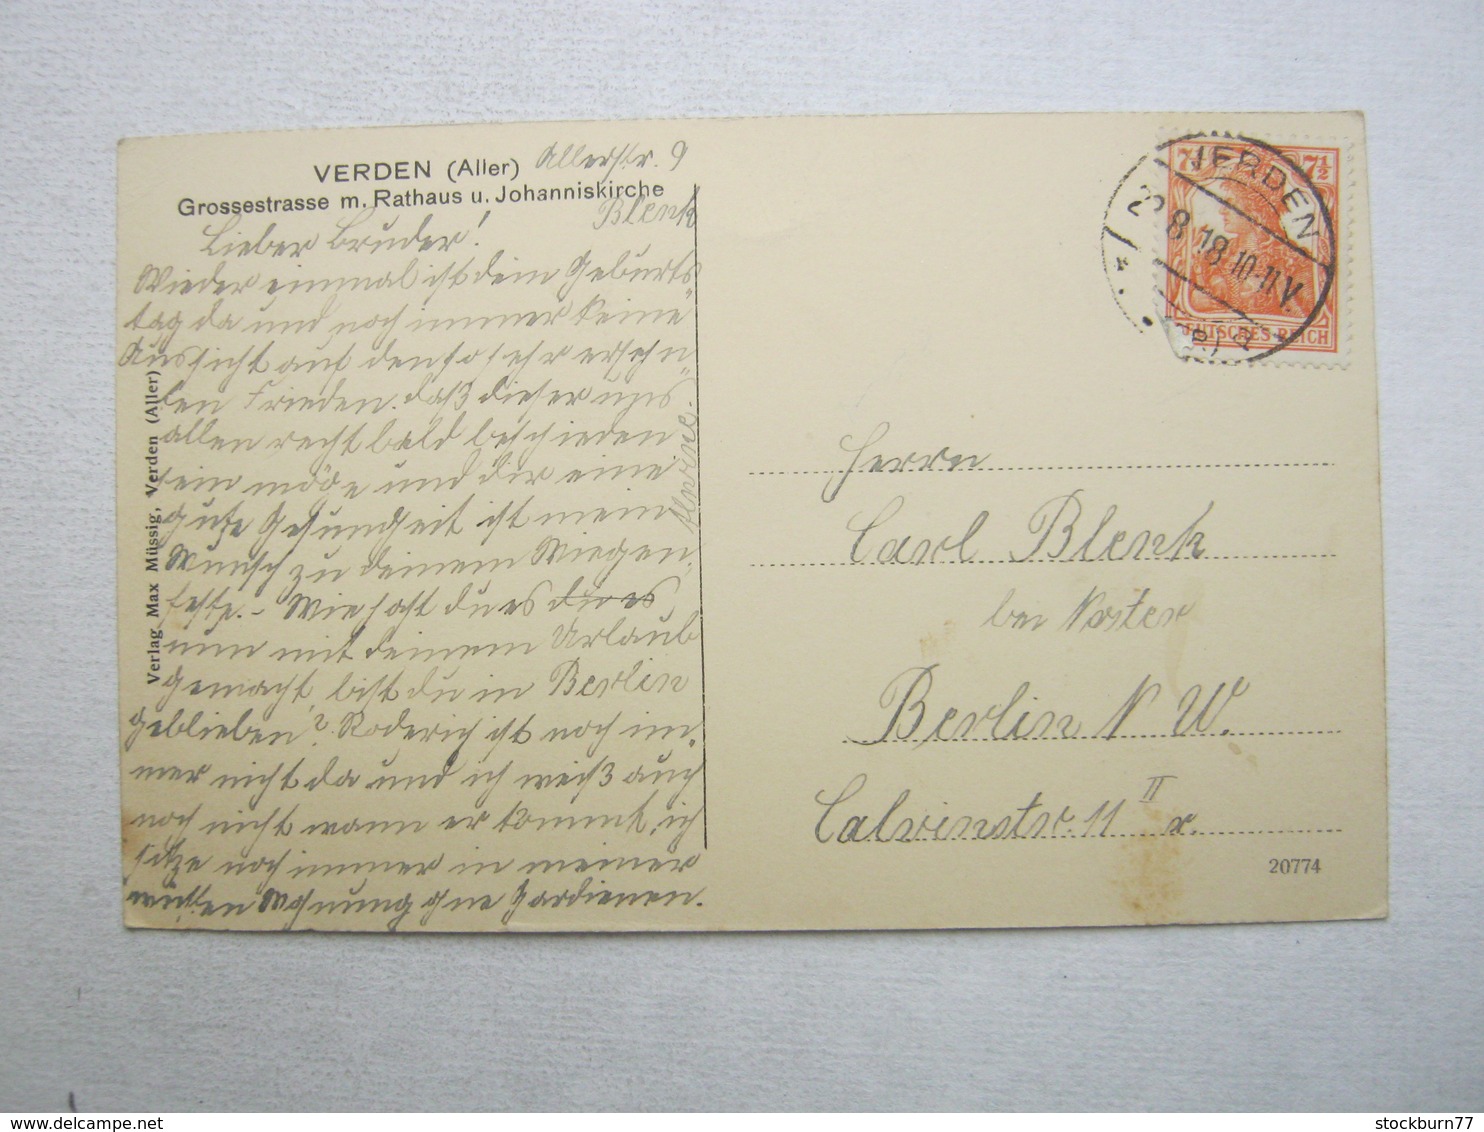 VERDEN (Aller) Allerstr. 9
Grossestrasse m. Rathaus u. Johanniskirche
Blenk
Lieber Bruder!
Wieder einmal ist dein Geburts-
tag da und noch immer keine
Aussicht auf den so sehr ersehn-
ten Frieden. daß dieser uns
allen recht bald beschieden
sein möge und dir eine
gute Gesundheit ist mein
Wunsch zu deinem Wiegen-
feste. - Wie hast du es du es
nun mit deinem Urlaub
gemacht, bist du in Berlin
geblieben? Roderich ist noch im-
mer nicht da und ich weiß auch
noch nicht wann er kommt, ich
sitze noch immer in meiner
Wohnung ohne Gardienen.
Alwine.
Verlag Max Müssig, Verden (Aller)
7½ 7½
DEUTSCHES REICH
VERDEN
8.18.10-11V.
Herrn
Carl Blenk
bei
Berlin N W.
Calvinstr. 11 II r.
20774
stockburn77 delcampe.net